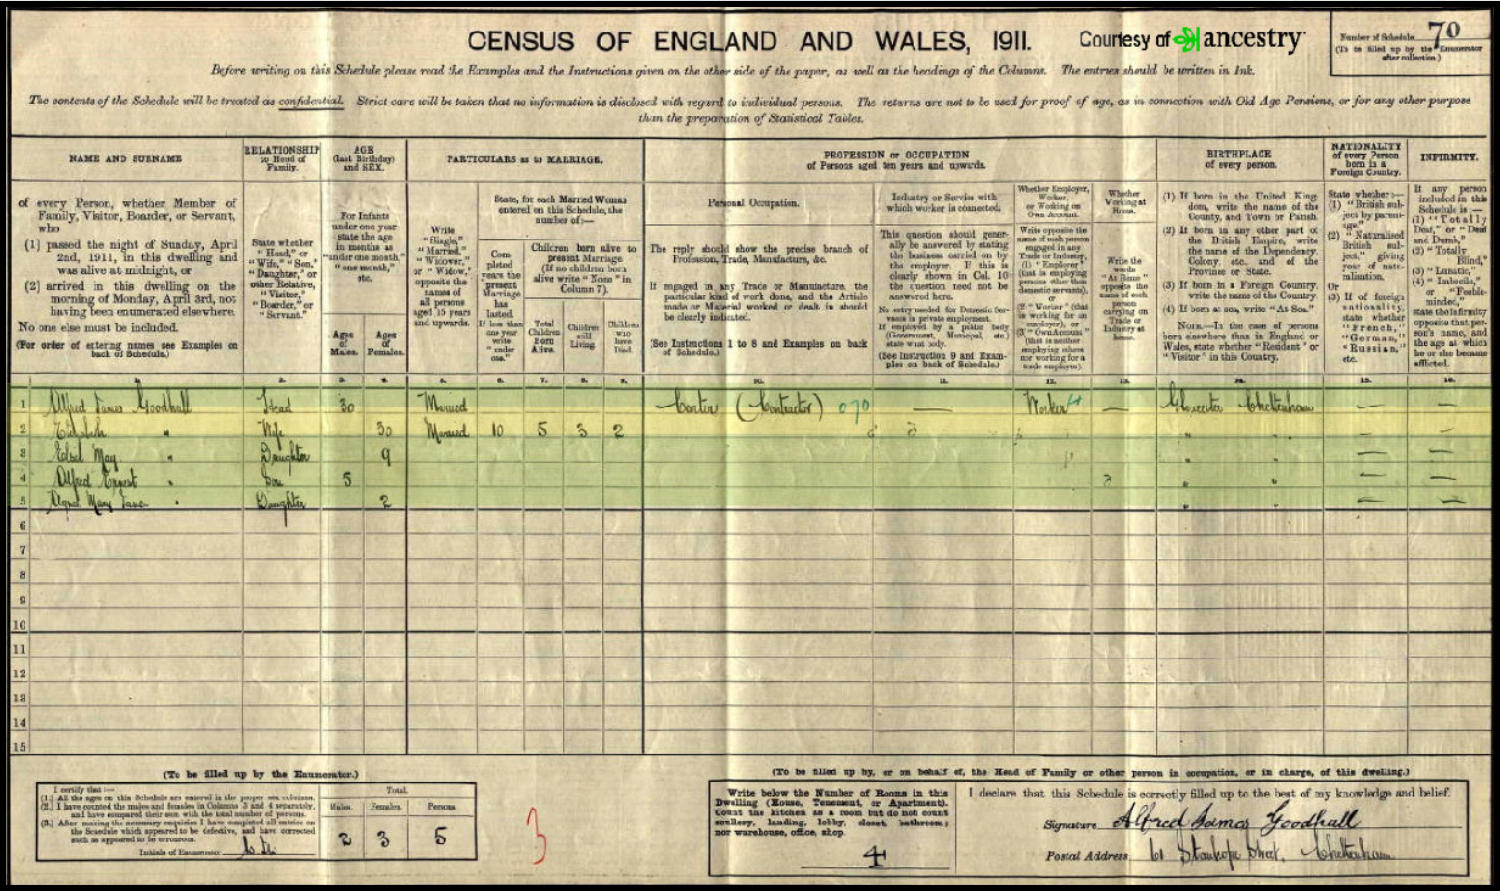 CENSUS OF ENGLAND AND WALES, 1911.
Courtesy of ancestry
Number of Schedule 70
(To be filled up by the Enumerator
after collection.)
Before writing on this Schedule please read the Examples and the Instructions given on the other side of the paper, as well as the headings of the Columns. The entries should be written in Ink.
The contents of the Schedule will be treated as confidential. Strict care will be taken that no information is disclosed with regard to individual persons. The returns are not to be used for proof of age, as in connection with Old Age Pensions, or for any other purpose
than the preparation of Statistical Tables.
NAME AND SURNAME
of every Person, whether Member of
Family, Visitor, Boarder, or Servant,
who
(1) passed the night of Sunday, April
2nd, 1911, in this dwelling and
was alive at midnight, or
(2) arrived in this dwelling on the
morning of Monday, April 3rd, not
having been enumerated elsewhere.
No one else must be included.
(For order of entering names see Examples on
back of Schedule.)
RELATIONSHIP
to Head of
Family.
State whether
"Head," or
"Wife," "Son,"
"Daughter," or
other Relative,
"Visitor,"
"Boarder," or
"Servant."
AGE
(last Birthday)
and SEX.
For Infants
under one year
state the age
in months as
"under one month,"
"one month,"
etc.
Ages
of
Males.
Ages
of
Females.
PARTICULARS as to MARRIAGE.
Write
"Single,"
"Married,"
"Widower,"
or "Widow,"
opposite the
names of
all persons
aged 15 years
and upwards.
State, for each Married Woman
entered on this Schedule, the
number of:—
Completed
years the
present
Marriage
has
lasted.
If less than
one year
write
"under
one."
Children born alive to
present Marriage.
(If no children born
alive write "None" in
Column 7).
Total
Children
Born
Alive.
Children
still
Living.
Children
who
have
Died.
PROFESSION or OCCUPATION
of Persons aged ten years and upwards.
Personal Occupation.
The reply should show the precise branch of
Profession, Trade, Manufacture, &c.
If engaged in any Trade or Manufacture, the
particular kind of work done, and the Article
made or Material worked or dealt in should
be clearly indicated.
(See Instructions 1 to 8 and Examples on back
of Schedule.)
Industry or Service with
which worker is connected.
This question should gener-
ally be answered by stating
the business carried on by
the employer. If this is
clearly shown in Col. 10
the question need not be
answered here.
No entry needed for Domestic Ser-
vants in private employment.
If employed by a public body
(Government, Municipal, etc.)
state what body.
(See Instruction 9 and Exam-
ples on back of Schedule.)
Whether Employer,
Worker,
or Working on
Own Account.
Write opposite the
name of each person
engaged in any
Trade or Industry,
(1) "Employer"
(that is employing
persons other than
domestic servants),
or
(2) "Worker" (that
is working for an
employer), or
(3) "Own Account"
(that is neither
employing others
nor working for a
trade employer).
Whether
Working at
Home.
Write the
words
"At Home"
opposite the
name of each
person
carrying on
Trade or
Industry at
home.
BIRTHPLACE
of every person.
(1) If born in the United King-
dom, write the name of the
County, and Town or Parish.
(2) If born in any other part of
the British Empire, write
the name of the Dependency,
Colony, etc. and of the
Province or State.
(3) If born in a Foreign Country,
write the name of the Country.
(4) If born at sea, write "At Sea."
NOTE.—In the case of persons
born elsewhere than in England or
Wales, state whether "Resident" or
"Visitor" in this Country.
NATIONALITY
of every Person
born in a
Foreign Country.
State whether:—
(1) "British sub-
ject by parent-
age,"
(2) "Naturalised
British sub-
ject," giving
year of natu-
ralisation.
Or
(3) If of foreign
nationality,
state whether
"French,"
"German,"
"Russian,"
etc.
INFIRMITY.
If any person
included in this
Schedule is:—
(1) "Totally
Deaf," or "Deaf
and Dumb,"
(2) "Totally
Blind,"
(3) "Lunatic,"
(4) "Imbecile,"
or "Feeble-
minded,"
state the infirmity
opposite that per-
son's name, and
the age at which
he or she became
afflicted.
1 Alfred James Goodhall Head 30 Married Carter (Contractor) 070 — Worker — Gloucester Cheltenham — —
2 Elizabeth " Wife 30 Married 10 5 3 2 " " — —
3 Ethel May " Daughter 9 " " — —
4 Alfred Ernest " Son 5 " " — —
5 Agnes Mary Jane " Daughter 2 " " — —
6
7
8
9
10
11
12
13
14
15
(To be filled up by the Enumerator.)
I certify that:—
(1.) All the ages on this Schedule are entered in the proper sex columns.
(2.) I have counted the males and females in Columns 3 and 4 separately,
and have compared their sum with the total number of persons.
(3.) After making the necessary enquiries I have completed all entries on
the Schedule which appeared to be defective, and have corrected
such as appeared to be erroneous.
Initials of Enumerator
Total.
Males. Females. Persons
2 3 5
3
(To be filled up by, or on behalf of, the Head of Family or other person in occupation, or in charge, of this dwelling.)
Write below the Number of Rooms in this
Dwelling (House, Tenement, or Apartment).
Count the kitchen as a room but do not count
scullery, landing, lobby, closet, bathroom;
nor warehouse, office, shop.
4
I declare that this Schedule is correctly filled up to the best of my knowledge and belief.
Signature Alfred James Goodhall
Postal Address 61 Stanhope Street, Cheltenham